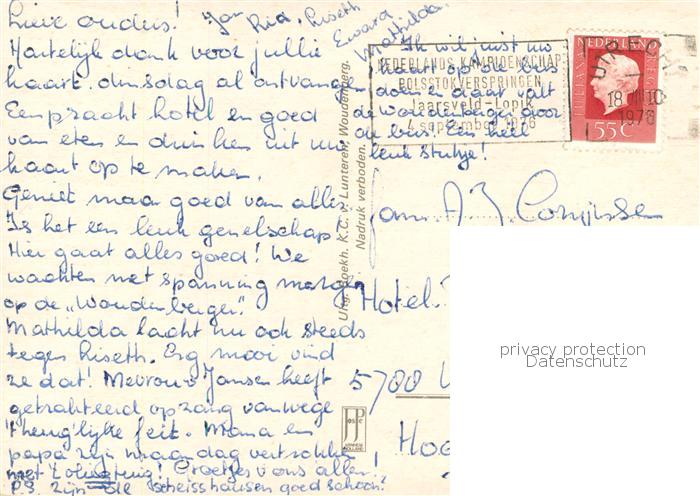 Lieve ouders!
Jan Ria, Liseth
Eward
Mathilda.
Hartelijk dank voor jullie
kaart. dinsdag al ontvangen
Een pracht hotel en goed
van eten en drinken uit uw
kaart op te maken.
Geniet maar goed van alles
Is het een leuk gezelschap?
Hier gaat alles goed! We
wachten met spanning morgen
op de „Woudenberger".
Mathilda lacht nu ook steeds
tegen Liseth. Erg mooi vind
ze dat! Mevrouw Jansen heeft
getrakteerd op zang vanwege
't heuglijke feit. Mama en
papa zijn maandag vertrokken
met Groetjes v. ons allen.
P.S. Zijn de scheisshausen goed schoon?
Ik wil juist uw
kaart op de bus
doen en daar valt
de Woudenberger door
de bus. Een heel
leuk stukje!
NEDERLANDS KAMPIOENSCHAP
POLSSTOKVERSPRINGEN
Jaarsveld-Lopik
4 september 1976
UTRECHT
18
1976
NEDERLAND
JULIANA REGINA
55 C
Uitg. Boekh. K.C. v. Lunteren, Woudenberg.
Nadruk verboden.
Fam. A J.
Hotel
5700
Ho
JosPé
privacy protection
Datenschutz